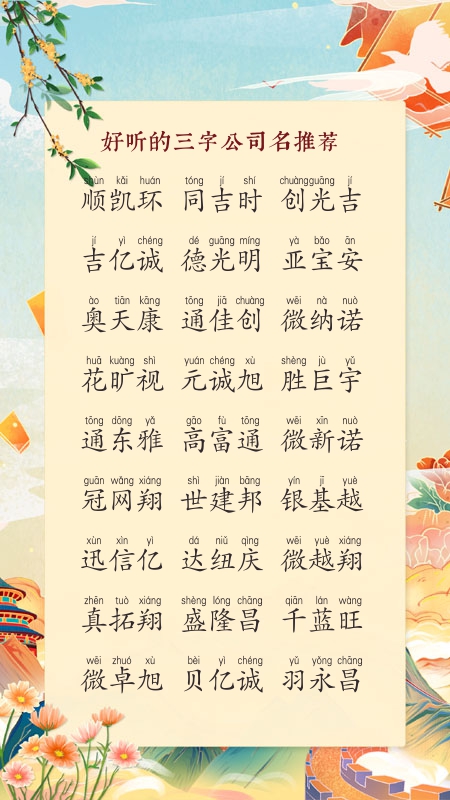 好听的三字公司名推荐
shùn kǎi huán tóng jí shí chuàngguāng jí
顺凯环 同吉时 创光吉
jí yì chéng dé guāng míng yà bǎo ān
吉亿诚 德光明 亚宝安
ào tiān kāng tōng jiā chuàng wēi nà nuò
奥天康 通佳创 微纳诺
huā kuàng shì yuán chéng xù shèng jù yǔ
花旷视 元诚旭 胜巨宇
tōng dōng yǎ gāo fù tōng wēi xīn nuò
通东雅 高富通 微新诺
guān wǎng xiáng shì jiàn bāng yín jī yuè
冠网翔 世建邦 银基越
xùn xìn yì dá niǔ qìng wēi yuè xiáng
迅信亿 达纽庆 微越翔
zhēn tuò xiáng shèng lóng chāng qiān lán wàng
真拓翔 盛隆昌 千蓝旺
wēi zhuó xù bèi yì chéng yǔ yǒng chāng
微卓旭 贝亿诚 羽永昌